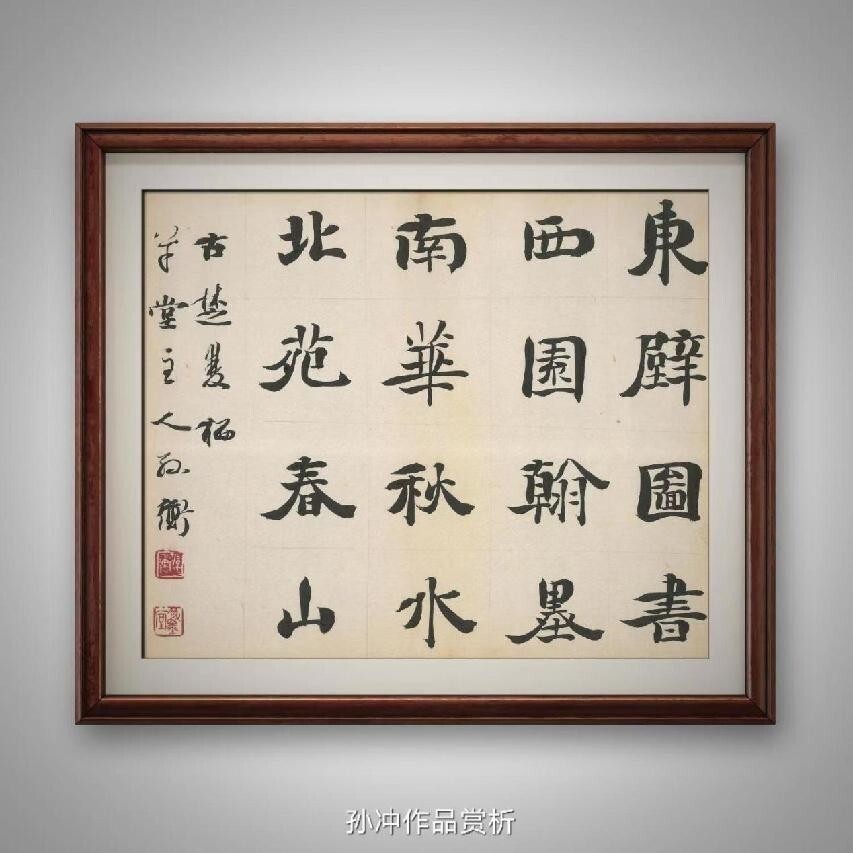 東壁圖書
西園翰墨
南華秋水
北苑春山
古楚雙栖
草堂主人孙衝
孙冲作品赏析